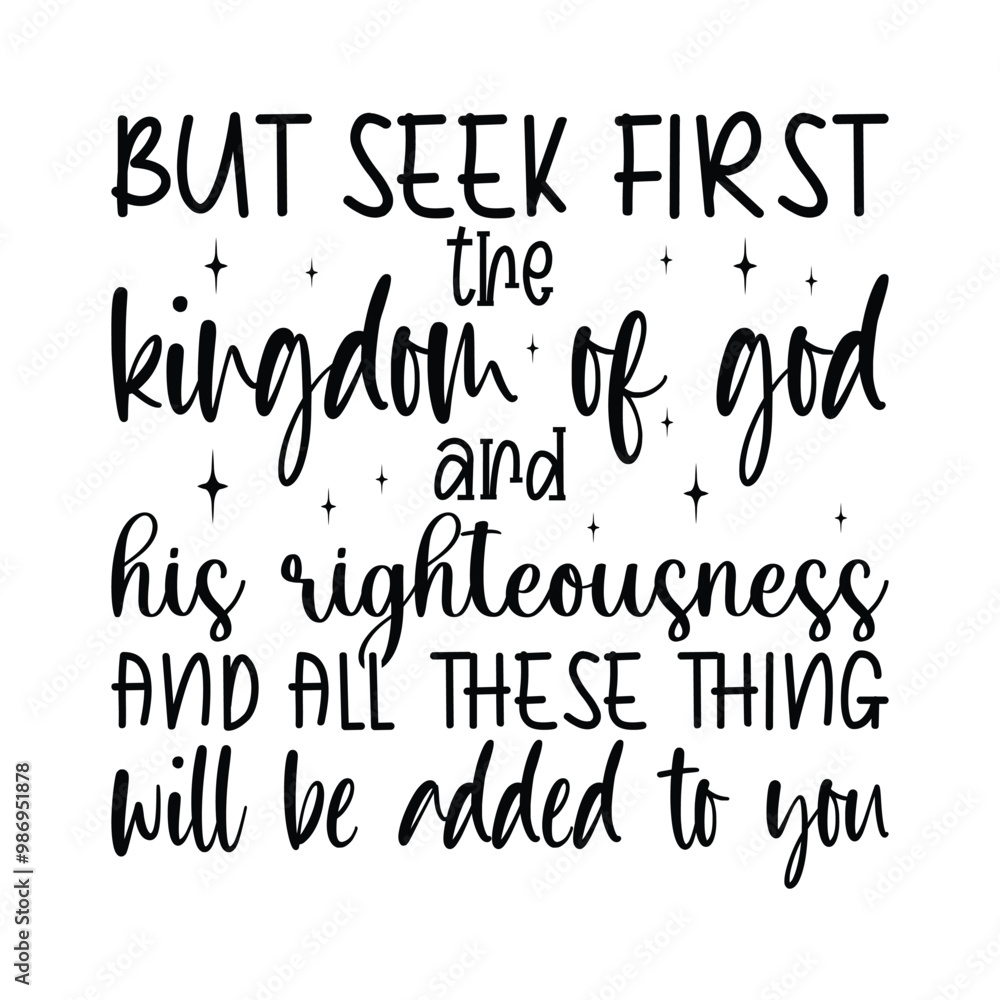 BUT SEEK FIRST
the
kingdom of god
and
his righteousness
AND ALL THESE THING
will be added to you
Adobe Stock | #986951878